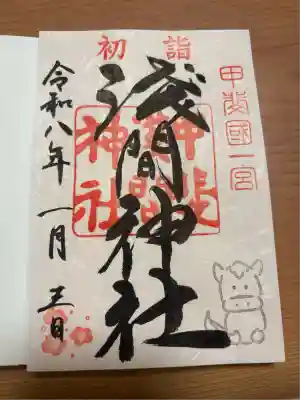 初詣
甲斐國一宮
淺間神社
甲斐
淺間
神社
令和八年 一月 日